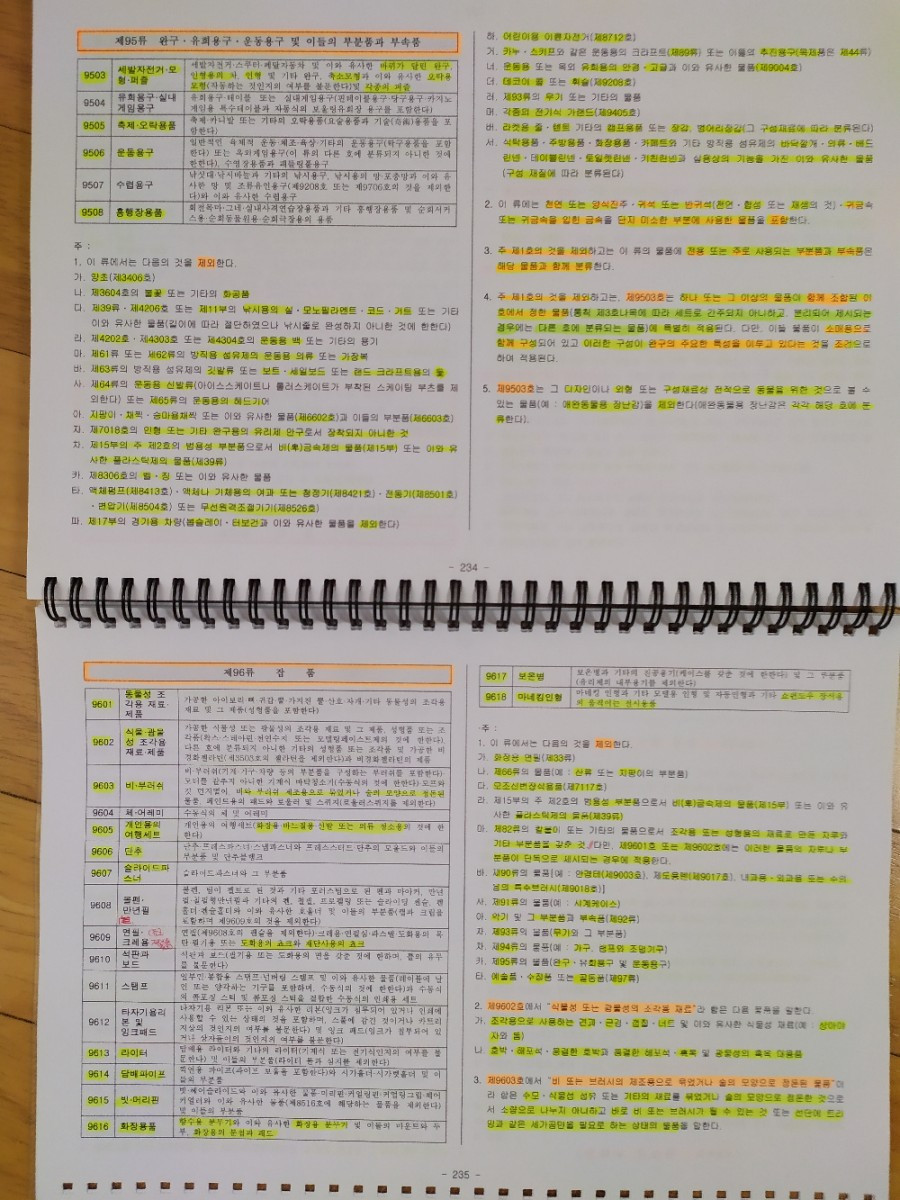 제95류 완구ㆍ유희용구ㆍ운동용구 및 이들의 부분품과 부속품
9503 세발자전거ㆍ모형ㆍ퍼즐
세발자전거ㆍ스쿠터ㆍ페달자동차 및 이와 유사한 바퀴가 달린 완구,
인형용의 차, 인형 및 기타 완구, 축소모형과 이와 유사한 오락용
모형(작동하는 것인지의 여부를 불문한다)및 각종의 퍼즐
9504 유희용구ㆍ실내게임용구
유희용구ㆍ테이블 또는 실내게임용구(핀테이블용구ㆍ당구용구ㆍ카지노
게임용 특수테이블과 자동식의 보울링유희장 용구를 포함한다)
9505 축제ㆍ오락용품
축제ㆍ카니발 또는 기타의 오락용품(요술용품과 기술(奇術)용품을 포
함한다)
9506 운동용구
일반적인 육체적 운동ㆍ체조ㆍ육상ㆍ기타의 운동용구(탁구용품을 포함
한다) 또는 옥외게임용구(이 류의 다른 호에 분류되지 아니한 것에
한한다), 수영장용품과 패들링풀용구
9507 수렵용구
낚싯대ㆍ낚시바늘과 기타의 낚시용구, 낚시용의 망ㆍ포충망과 이와 유
사한 망 및 조류유인용구(제9208호 또는 제9705호의 것을 제외한
다)와 이와 유사한 수렵용구
9508 흥행장용품
회전목마ㆍ그네ㆍ실내사격연습장용품과 기타 흥행장용품 및 순회서커
스용ㆍ순회동물원용ㆍ순회극장용의 용품
주 :
1. 이 류에서는 다음의 것을 제외한다.
가. 양초(제3406호)
나. 제3604호의 불꽃 또는 기타의 화공품
다. 제39류ㆍ제4206호 또는 제11부의 낚시용의 실ㆍ모노필라멘트ㆍ코드ㆍ거트 또는 기타
이와 유사한 물품(길이에 따라 절단하였으나 낚시줄로 완성하지 아니한 것에 한한다)
라. 제4202호ㆍ제4303호 또는 제4304호의 운동용 백 또는 기타의 용기
마. 제61류 또는 제62류의 방직용 섬유제의 운동용 의류 또는 가장복
바. 제63류의 방직용 섬유제의 깃발류 또는 보트ㆍ세일보드 또는 랜드 크라프트용의 돛
사. 제64류의 운동용 신발류(아이스스케이트나 롤러스케이트가 부착된 스케이팅 부츠를 제
외한다) 또는 제65류의 운동용의 헤드기어
아. 지팡이ㆍ채찍ㆍ승마용채찍 또는 이와 유사한 물품(제6602호)과 이들의 부분품(제6603호)
자. 제7018호의 인형 또는 기타 완구용의 유리제 안구로서 장착되지 아니한 것
차. 제15부의 주 제2호의 범용성 부분품으로서 비(卑)금속제의 물품(제15부) 또는 이와 유
사한 플라스틱제의 물품(제39류)
카. 제8306호의 벨ㆍ징 또는 이와 유사한 물품
타. 액체펌프(제8413호)ㆍ액체나 기체용의 여과 또는 청정기(제8421호)ㆍ전동기(제8501호)
ㆍ변압기(제8504호) 또는 무선원격조절기기(제8526호)
파. 제17부의 경기용 차량(봅슬레이ㆍ터보건과 이와 유사한 물품을 제외한다)
하. 어린이용 이륜자전거(제8712호)
거. 카누ㆍ스키프와 같은 운동용의 크라프트(제89류) 또는 이들의 추진용구(목제품은 제44류)
너. 운동용 또는 옥외 유희용의 안경ㆍ고글과 이와 유사한 물품(제9004호)
더. 데코이 콜 또는 휘슬(제9208호)
러. 제93류의 무기 또는 기타의 물품
머. 각종의 전기식 가랜드(제9405호)
버. 라켓용 줄ㆍ텐트 기타의 캠프용품 또는 장갑, 벙어리장갑(그 구성재료에 따라 분류된다)
서. 식탁용품ㆍ주방용품ㆍ화장용품ㆍ카페트와 기타 방직용 섬유제의 바닥깔개ㆍ의류ㆍ베드
린넨ㆍ테이블린넨ㆍ토일렛린넨ㆍ키친린넨과 실용성의 기능을 가진 이와 유사한 물품
(구성 재질에 따라 분류된다)
2. 이 류에는 천연 또는 양식진주ㆍ귀석 또는 반귀석(천연ㆍ합성 또는 재생의 것)ㆍ귀금속
또는 귀금속을 입힌 금속을 단지 미소한 부분에 사용한 물품을 포함한다.
3. 주 제1호의 것을 제외하고는 이 류의 물품에 전용 또는 주로 사용되는 부분품과 부속품은
해당 물품과 함께 분류한다.
4. 주 제1호의 것을 제외하고는, 제9503호는 하나 또는 그 이상의 물품이 함께 조합된 이
호에서 정한 물품(통칙 제3호나목에 따라 세트로 간주되지 아니하고, 분리되어 제시되는
경우에는 다른 호에 분류되는 물품)에 특별히 적용된다. 다만, 이들 물품이 소매용으로
함께 구성되어 있고 이러한 구성이 완구의 주요한 특성을 이루고 있다는 것을 조건으로
하여 적용된다.
5. 제9503호는 그 디자인이나 외형 또는 구성재료상 전적으로 동물을 위한 것으로 볼 수
있는 물품(예 : 애완동물용 장난감)을 제외한다(애완동물용 장난감은 각각 해당 호에 분
류한다).
- 234 -
제96류 잡 품
9601 동물성 조각용 재료ㆍ제품
가공한 아이보리ㆍ뼈ㆍ귀갑ㆍ뿔ㆍ가지진 뿔ㆍ산호ㆍ자개ㆍ기타 동물성의 조각용
재료 및 그 제품(성형품을 포함한다)
9602 식물ㆍ광물성 조각용 재료ㆍ제품
가공한 식물성 또는 광물성의 조각용 재료 및 그 제품, 성형품 또는 조
각품(왁스ㆍ스테아린ㆍ천연수지 또는 모델링페이스트제의 것에 한한다),
다른 호에 분류되지 아니한 기타의 성형품 또는 조각품 및 가공한 비
경화젤라틴(제3503호의 젤라틴을 제외한다)과 비경화젤라틴의 제품
9603 비ㆍ부러쉬
비ㆍ부러쉬(기계ㆍ기구ㆍ차량 등의 부분품을 구성하는 부러쉬를 포함한다),
모터를 갖추지 아니한 기계식 바닥청소기(수동식의 것에 한한다)ㆍ모프와
깃 먼지털이, 비와 부러쉬 제조용으로 묶었거나 술의 모양으로 정돈된
물품, 페인트용의 패드와 로울러 및 스퀴지(로울러스퀴지를 제외한다)
9604 체ㆍ어레미
수동식의 체 및 어레미
9605 개인용의 여행세트
개인용의 여행세트(화장용ㆍ바느질용ㆍ신발 또는 의류 청소용의 것에 한
한다)
9606 단추
단추ㆍ프레스파스너ㆍ스냅파스너와 프레스스터드ㆍ단추의 모울드와 이들의
부분품 및 단추블랭크
9607 슬라이드파스너
슬라이드파스너와 그 부분품
9608 볼펜ㆍ만년필
볼펜, 팁이 펠트로 된 것과 기타 포러스팁으로 된 펜과 마아커, 만년
9609 연필ㆍ크레용
연필(제9608호의 펜슬을 제외한다)ㆍ크레용ㆍ연필심ㆍ파스텔ㆍ도화용의 목
탄ㆍ필기용 또는 도화용의 쵸크와 재단사용의 쵸크
9610 석판과 보드
석판과 보드(필기용 또는 도화용의 면을 갖춘 것에 한하며, 틀의 유무
를 불문한다)
9611 스탬프
9612 타자기용리본 및 잉크패드
9613 라이터
담배용 라이터와 기타의 라이터(기계식 또는 전기식인지의 여부를 불
문한다) 및 이들의 부분품(라이터 돌과 심지를 제외한다)
9614 담배파이프
9615 빗ㆍ머리핀
9616 화장용품
향수용 분무기와 이와 유사한 화장용 분무기 및 이들의 마운트와 두
부, 화장용의 분첩과 패드
9617 보온병
보온병과 기타의 진공용기(케이스를 갖춘 것에 한한다) 및 그 부분품
(유리제의 내부용기를 제외한다)
9618 마네킹인형
마네킹 인형과 기타 모델용 인형 및 자동인형과 기타 쇼윈도우 장식용
의 움직이는 전시용품
주 :
1. 이 류에서는 다음의 것을 제외한다.
가. 화장용 연필(제33류)
나. 제66류의 물품(예 : 산류 또는 지팡이의 부분품)
다. 모조신변장식용품(제7117호)
라. 제15부의 주 제2호의 범용성 부분품으로서 비(卑)금속제의 물품(제15부) 또는 이와 유
사한 플라스틱제의 물품(제39류)
마. 제82류의 칼붙이 또는 기타의 물품으로서 조각용 또는 성형용의 재료로 만든 자루와
기타 부분품을 갖춘 것. 다만, 제9601호 또는 제9602호에는 이러한 물품의 자루나 부
분품이 단독으로 제시되는 경우에 적용한다.
바. 제90류의 물품(예 : 안경테(제9003호), 제도용펜(제9017호), 내과용ㆍ외과용 또는 수의
용의 특수브러시(제9018호)]
사. 제91류의 물품(예 : 시계케이스)
아. 악기 및 그 부분품과 부속품(제92류)
자. 제93류의 물품(무기와 그 부분품)
차. 제94류의 물품(예 : 가구, 램프와 조명기구)
카. 제95류의 물품(완구ㆍ유희용구 및 운동용구)
타. 예술품ㆍ수집품 또는 골동품(제97류)
2. 제9602호에서 "식물성 또는 광물성의 조각용 재료"라 함은 다음 물품을 말한다.
가. 조각용으로 사용하는 견과ㆍ군건ㆍ곱질ㆍ너트 및 이와 유사한 식물성 재료(예 : 상아야
자와 돔)
나. 호박ㆍ해포석ㆍ응결한 호박과 응결한 해포석ㆍ흑옥 및 광물성의 흑옥 대용품
3. 제9603호에서 "비 또는 브러시의 제조용으로 묶었거나 술의 모양으로 정돈된 물품"이
라 함은 수모ㆍ식물성 섬유 또는 기타의 재료를 묶었거나 술의 모양으로 정돈한 것으로
서 소량으로 나누지 아니하고 바로 비 또는 브러시가 될 수 있는 것 또는 선단에 트리
밍과 같은 세가공만을 필요로 하는 상태의 물품을 말한다.
- 235 -